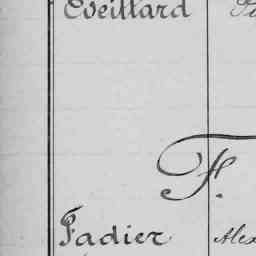 Eveillard
F.
Fadier Alex